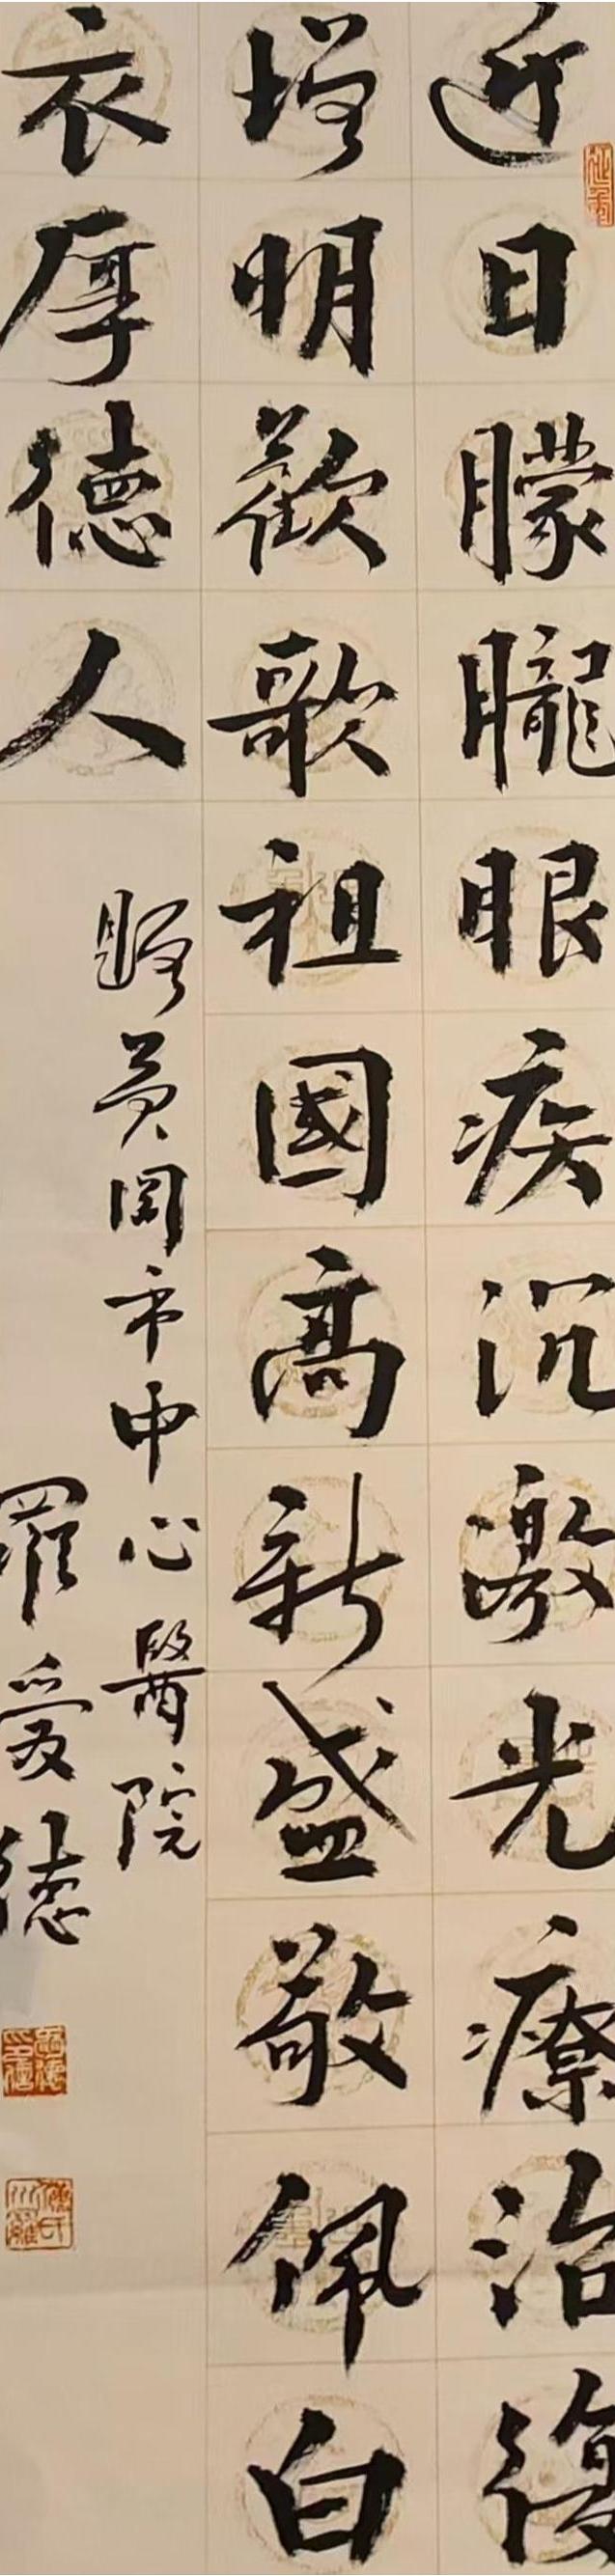 近日朦朧眼疾沉激光療治復
增明歡歌祖國高新盛敬佩白
衣厚德人
黄岡市中心醫院
羅爱德